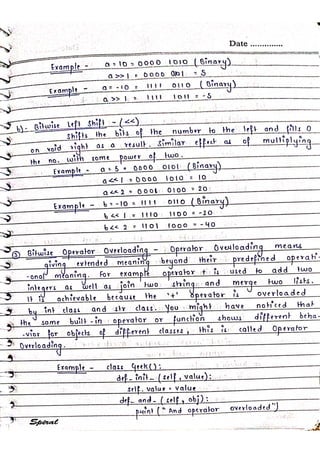 Date ..............
Example - a = 10 = 0000 1010 ( Binary)
a >> 1 = 0000 0101 = 5
Example - a = -10 = 1111 0110 ( Binary)
a >> 1 = 1111 1011 = -5
b)- Bitwise Left Shift - (<<)
Shifts the bits of the number to the left and fills 0
on void right as a result. Similar effect as of multiplying
the no. with some power of two.
Example - a = 5 = 0000 0101 (Binary)
a << 1 = 0000 1010 = 10
a << 2 = 0001 0100 = 20
Example - b = -10 = 1111 0110 (Binary)
b << 1 = 1110 1100 = -20
b << 2 = 1101 1000 = -40
Bitwise Operator Overloading - Operator Overloading means
giving extended meaning beyond their predefined operati-
-onal meaning. For example operator + is used to add two
integers as well as join two string and merge two lists.
It is achievable because the '+' operator is overloaded
by int class and str class. You might have noticed that
the same built-in operator or function shows different beha-
-vior for objects of different classes, this is called Operator
Overloading.
Example - class Geek():
def_init_ (self, value):
self.value = value
def_and_ (self, obj):
print ("And operator overloaded")
Spiral